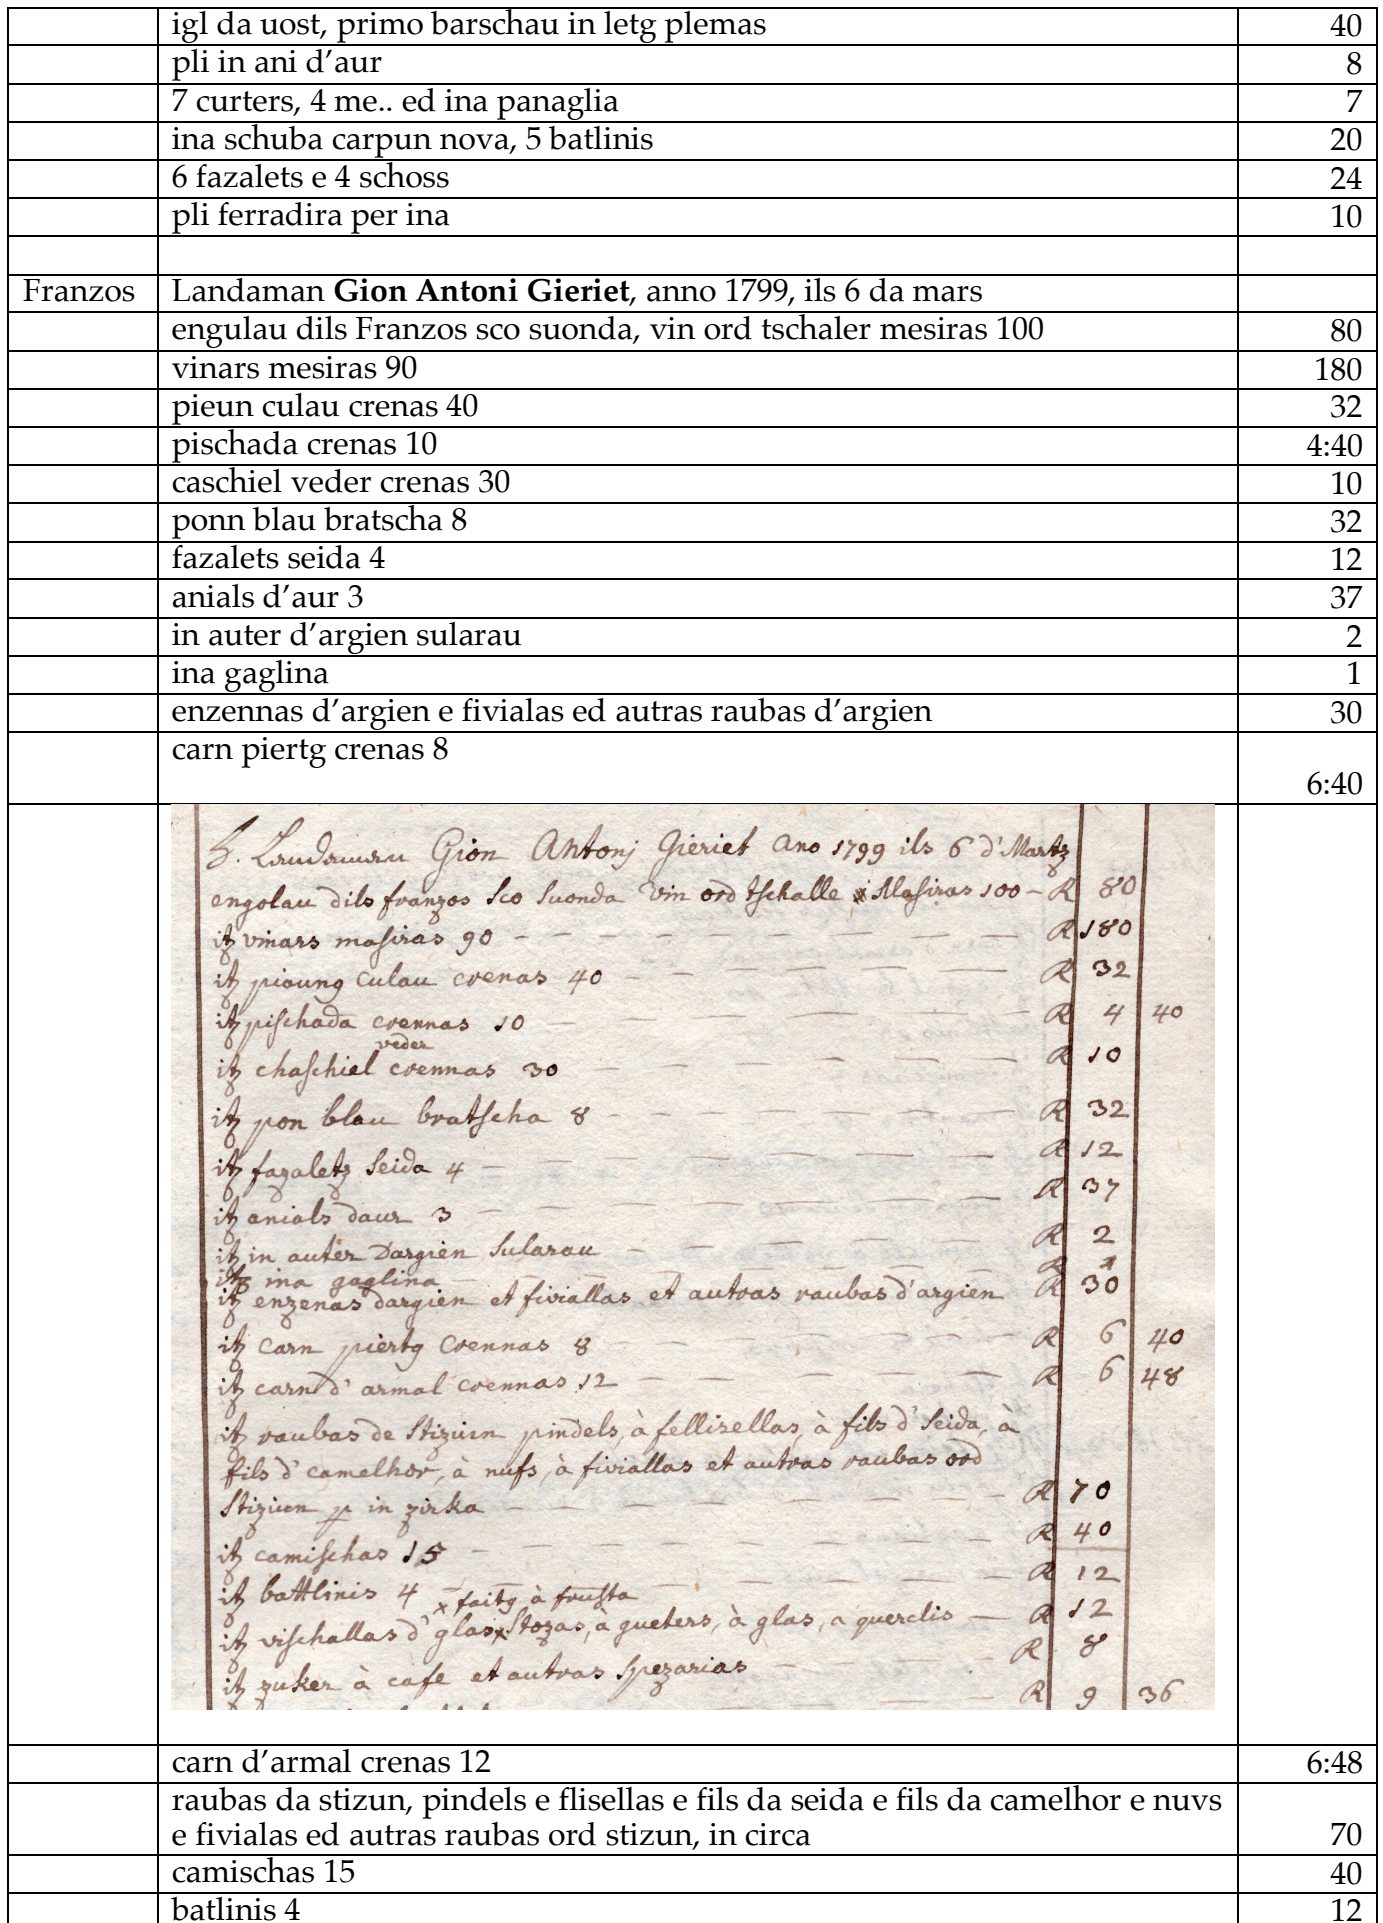 igl da uost, primo barschau in letg plemas 40
pli in ani d’aur 8
7 curters, 4 me.. ed ina panaglia 7
ina schuba carpun nova, 5 batlinis 20
6 fazalets e 4 schoss 24
pli ferradira per ina 10
Franzos Landaman Gion Antoni Gieriet, anno 1799, ils 6 da mars
engulau dils Franzos sco suonda, vin ord tschaler mesiras 100 80
vinars mesiras 90 180
pieun culau crenas 40 32
pischada crenas 10 4:40
caschiel veder crenas 30 10
ponn blau bratscha 8 32
fazalets seida 4 12
anials d’aur 3 37
in auter d’argien sularau 2
ina gaglina 1
enzennas d’argien e fivialas ed autras raubas d’argien 30
carn piertg crenas 8 6:40
Landaman Gion Antonj Gieriet Ano 1799 ils 6 d'Martz
engolau dils franzos sco suonda vin ord tschalle Masiras 100 - R 80
itz vinars masiras 90 R 180
itz pioung culau crenas 40 R 32
itz pischada crennas 10 R 4 40
veder
itz chaschiel crennas 30 R 10
itz pon blau bratscha 8 R 32
itz fazaletz seida 4 R 12
itz anials daur 3 R 37
itz in auter dargien sularau R 2
itz ina gaglina R 1
itz enzenas dargien et fiviallas et autras raubas d'argien R 30
itz carn piertg crennas 8 R 6 40
itz carn d'armal crennas 12 R 6 48
itz raubas de stizuin pindels, à fellisellas, à fils d'seida, à
fils d'camelhor, à nufs, à fiviallas et autras raubas ord
stiziun p in zirka R 70
itz camischas 15 R 40
itz battlinis 4 R 12
x faitg à frusta
itz vischallas d'glas, x stozas, à gueters, à glas, a querclis R 12
itz zuker à cafe et autras spezarias R 8
R 9 36
carn d’armal crenas 12 6:48
raubas da stizun, pindels e flisellas e fils da seida e fils da camelhor e nuvs
e fivialas ed autras raubas ord stizun, in circa 70
camischas 15 40
batlinis 4 12